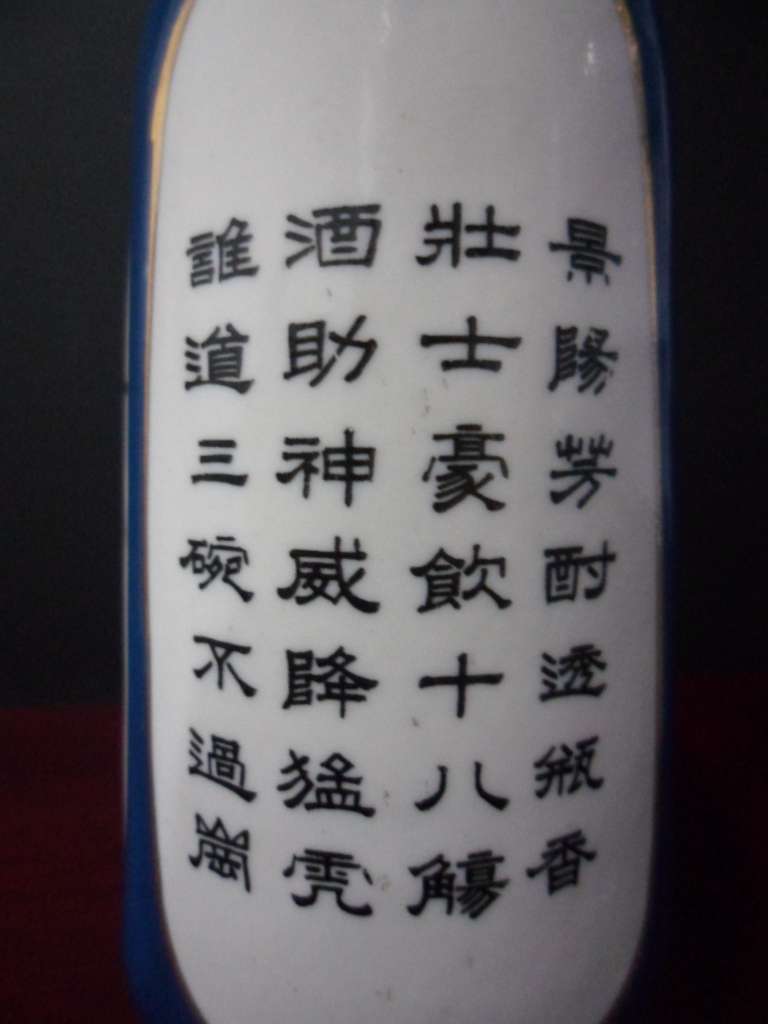 景陽芳酎透瓶香
壯士豪飲十八觴
酒助神威降猛虎
誰道三碗不過崗